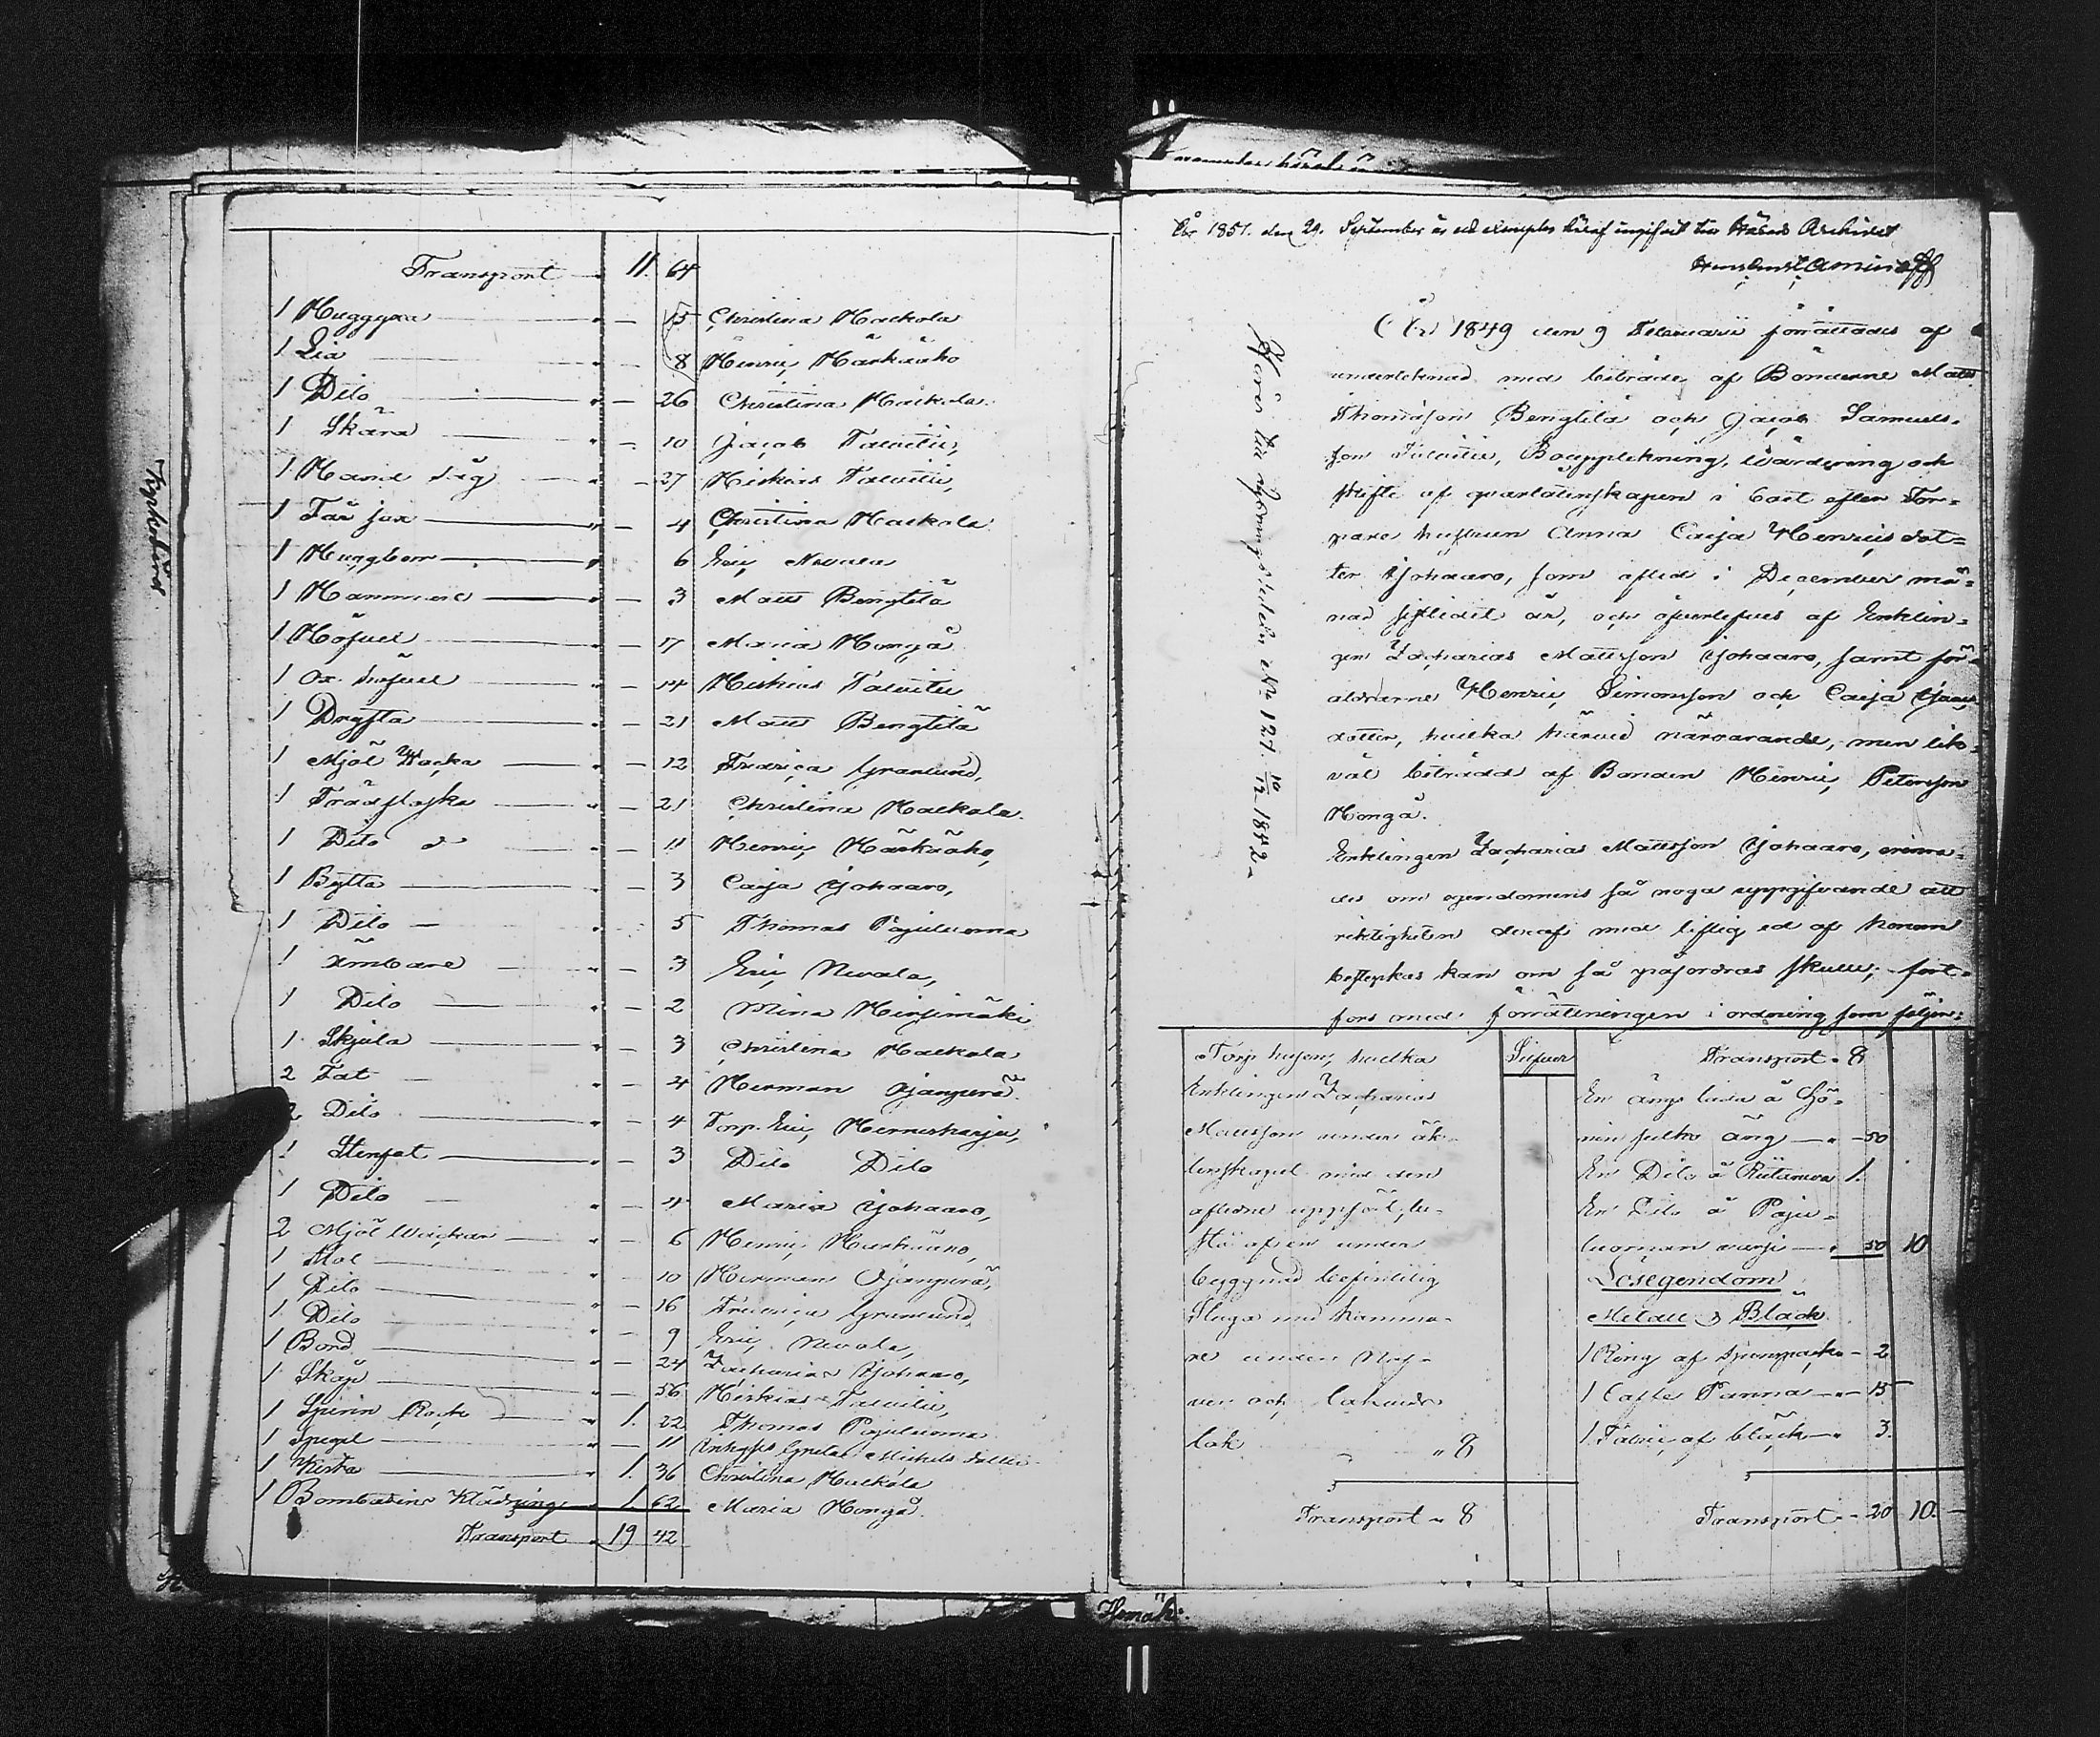 Transport 11. 64
1 Huggyxa " — 15 Christina Hackola
1 Lia " — 8 Henric Härkäaho
1 Dito " — 26 Christina Hackola
1 Skära " — 10 Jacob Talvitie,
1 Hand såg " — 27 Hiskias Talvitie,
1 Får sax " — 4 Christina Hackola
1 Huggborr " 6 Eric Nevala
1 Hammare " — 3 Matts Bengtilä
1 Höfvel " — 17 Maria Honga
1 Ox. " — 14 Hiskias Talvitie
1 Dryfta " — 21 Matts Bengtilä
1 Mjöl Wacka " — 12 Fredrica Granlund,
1 Trädflaska " — 21 Christina Hackola.
1 Dito d:o " — 11 Henric Härkäaho,
1 Bytta " — 3 Caisa Ojohaaro,
1 Dito — " 5 Thomas Pajuluoma
1 Ämbare " — 3 Eric Nevala,
1 Dito " — 2 Mina Hirsimäki
1 Skjula " — 3 Christina Hackola
2 Fat " — 4 Herman Ojanperä
2 Dito " — 4 Torp. Eric
1 Stenfat " — 3 Dito Dito
1 Dito " — 4 Maria Ojohaaro,
2 Mjöl Wackor " — 6 Henric Harkäaho,
1 Stol " — 10 Herman Ojanperä,
1 Dito " — 16 Fredrica Granlund
1 Dito " — 9 Eric Nevala,
1 Bord " — 24 Zacharias Ojohaaro,
1 Skåp " — 56 Hiskias Talvitie,
1 Spinn Rock " 1. 22 Thomas Pajuluoma
1 Spegel " — 11 Greta Michels dotter
1 Kista " 1. 36 Christina Hackola
1 Bombasins Klädning " 1. 62 Maria Honga
Transport " 19 42
År 1851. den 29. September är ett exemplar häraf ingifvit till Härads Archivet
Aminoff
Hörer till
N:o 127. 10/12 1842.
År 1849 den 9 Februarii förrättades af
undertecknad med biträde af Bönderne Matts
Thomasson Bengtilä och Jacob Samuels-
son Talvitie, Bouppteckning, värdering och
skifte af qvarlåtenskapen i boet efter Tor-
pare hustrun Anna Caisa Henricsdot-
ter Ojohaaro, som afled i December må-
nad sistledit år, och öfverlefves af Enklin-
gen Zacharias Mattsson Ojohaaro, samt för-
äldrarne Henric Simonsson och Caisa
dotter, hvilka härvid närvarande, men lik-
väl biträdd af Bonden Henric Petersson
Honga.
Enklingen Zacharias Mattsson Ojohaaro, erinra-
des om egendomens så noga uppgifvande att
riktigheten deraf med liflig ed af honom
bestyrkas kan om så påfordras skulle; fort-
fors med förrättningen i ordning som följer:
Torp husen, hvilka
Enklingen Zacharias
Mattsson under äk-
tenskapet med den
aflidne uppfört, be-
stå af en under
byggnad befintlig
Stuga med kamma-
re under Näf-
ver och
tak " 8
Transport " 8
Silfver
Transport " 8
En ängs lada å
äng — " — 50
En Dito å 1.
En Dito å Paju-
luoman — " 50 10
Lösegendom
Metall & Bläck
1 Ring af " — 2
1 Caffe Panna — " — 15
1 af bläck — " 3.
Transport " — 20 10. —